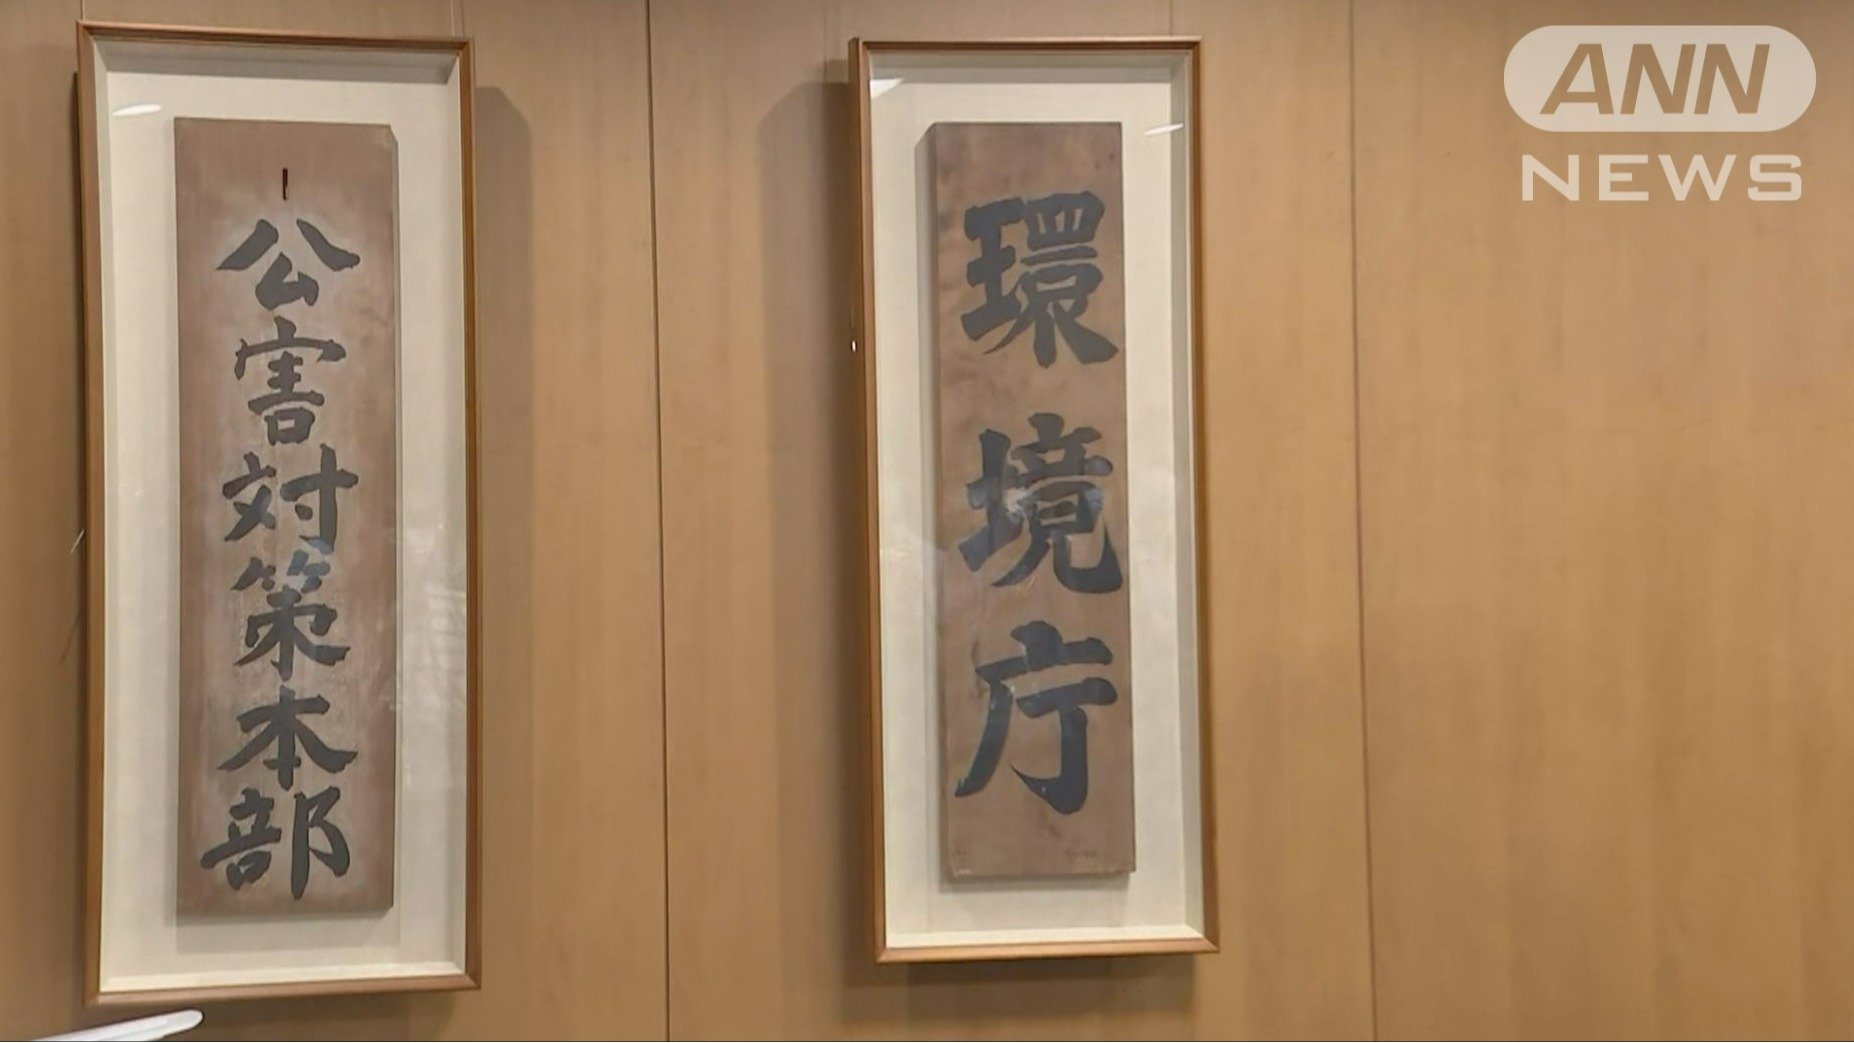 公害対策本部
環境庁
ANN
NEWS